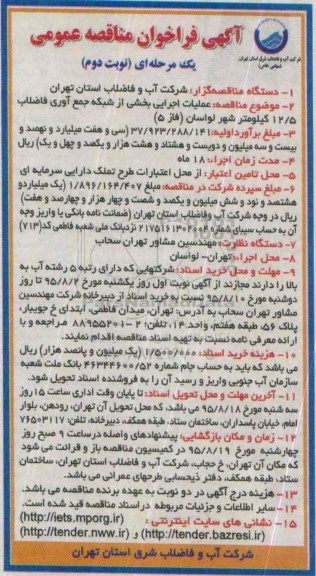 شرکت آب و فاضلاب شرق استان تهران
(سهامی خاص)
آگهی فراخوان مناقصه عمومی
یک مرحله‌ای (نوبت دوم)
۱- دستگاه مناقصه‌گزار: شرکت آب و فاضلاب استان تهران
۲- موضوع مناقصه: عملیات اجرایی بخشی از شبکه جمع آوری فاضلاب
۱۲/۵ کیلومتر شهر لواسان (فاز ۵)
۳- مبلغ برآورداولیه: ۳۷/۹۲۳/۲۸۸/۱۴۱ (سی و هفت میلیارد و نهصد و
بیست و سه میلیون و دویست و هشتاد و هشت هزار و یکصد و چهل و یک) ریال
۴- مدت زمان اجرا: ۱۸ ماه
۵- محل تامین اعتبار: از محل اعتبارات طرح تملک دارایی سرمایه ای
۶- مبلغ سپرده شرکت در مناقصه: مبلغ ۱/۸۹۶/۱۶۴/۴۰۷ (یک میلیاردو
هشتصد و نود و شش میلیون و یکصد و شصت و چهار هزار و چهارصد و هفت)
ریال در وجه شرکت آب وفاضلاب استان تهران (ضمانت نامه بانکی یا واریز وجه
آن به حساب سیبای شماره ۲۱۷۵۱۶۱۳۰۲۰۰۵ نزدبانک ملی شعبه فاطمی کد(۷۱۳)
۷- دستگاه نظارت: مهندسین مشاور تهران سحاب
۸- محل اجراء: تهران- لواسان
۹- مهلت و محل خرید اسناد: شرکتهایی که دارای رتبه ۵ رشته آب به
بالا را دارند مجازند از آگهی نوبت اول روز یکشنبه مورخ ۹۵/۸/۲ تا روز
دوشنبه مورخ ۹۵/۸/۱۰ نسبت به خرید اسناد از دبیرخانه شرکت مهندسین
مشاور تهران سحاب به آدرس: تهران، میدان فاطمی، ابتدای خ جویبار،
پلاک ۵۶، طبقه هفتم، واحد ۱۴، تلفن: ۲-۸۸۹۵۵۲۰۱ مراجعه و با
ارائه معرفی نامه نسبت به تهیه اسناد مناقصه اقدام نمایند.
۱۰- هزینه خرید اسناد: ۱/۵۰۰/۰۰۰ (یک میلیون و پانصد هزار) ریال
می باشد که باید به حساب جام شماره ۴۶۳۴۴۶۰۰/۵۲ بانک ملت شعبه
سازمان آب جنوبی واریز و رسید آن را به فروشنده اسناد تحویل شود.
۱۱- آخرین مهلت و محل تحویل اسناد: تا پایان وقت اداری ساعت ۱۵ روز
سه شنبه مورخ ۹۵/۸/۱۸ می باشد، که محل تحویل آن تهران، رودهن، بلوار
امام، خیابان پاسداران، ساختمان ستاد، طبقه همکف، دبیرخانه، تلفن: ۷۶۵۰۳۱۱۷
۱۲- زمان و مکان بازگشایی: پیشنهادهای واصله درساعت ۹ صبح روز
چهارشنبه مورخ ۹۵/۸/۱۹ در کمیسیون مناقصه باز و قرائت می شود
که مکان آن تهران، خ حجاب، شرکت آب و فاضلاب استان تهران، ساختمان
ستاد، طبقه همکف، دفتر ذیحسابی طرحهای عمرانی می باشد.
۱۳- هزینه درج آگهی در دو نوبت به عهده برنده مناقصه می باشد.
۱۴- سایر اطلاعات و جزئیات مربوطه در اسناد مناقصه قید شده است.
۱۵- نشانی های سایت اینترنتی: (http://iets.mporg.ir)
(http://tender.bazresi.ir) و (http://tender.nww.ir)
شرکت آب و فاضلاب شرق استان تهران